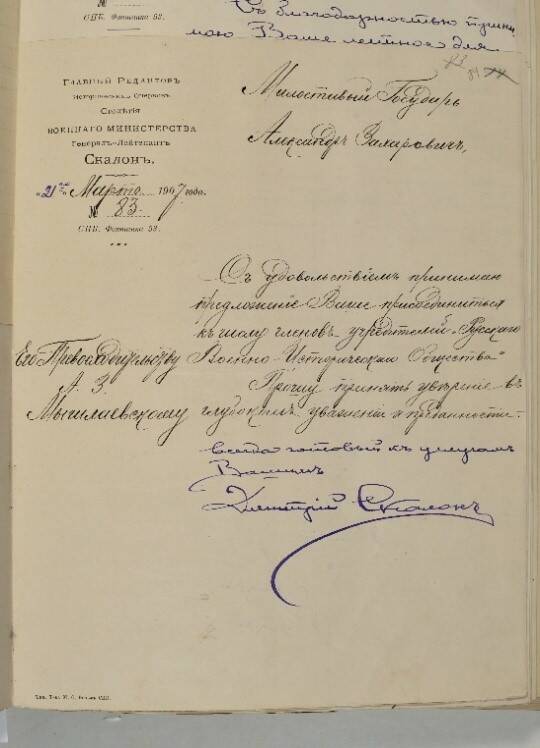 СПБ. Фонтанка 53.
Съ благодарностью прини
маю Ваше лестное для
83
84
Главный Редакторъ
Историческихъ Очерковъ
Столѣтія
Военнаго Министерства
Генералъ-Лейтенантъ
Скалонъ.
„21“ Марта 1907 года.
№ 83.
СПБ. Фонтанка 53.
Милостивый Государь
Александръ Захаровичъ,
Съ удовольствіемъ принимаю
предложеніе Ваше присоединиться
къ числу членовъ учредителей „Русскаго
Военно-Историческаго Общества“
Прошу принять увѣреніе въ
глубокомъ уваженіи и преданности.
Его Превосходительству
А. З.
Мышлаевскому
всегда готовый къ услугамъ
Вашимъ
Дмитрій Скалонъ